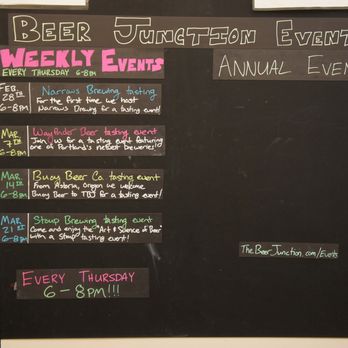 BEER JUNCTION EVENT
WEEKLY EVENTS
EVERY THURSDAY 6-8PM
ANNUAL EVEN
FEB 28TH 6-8PM
Narrows Brewing tasting
For the first time, we host
Narrows Brewing for a tasting event!
MAR 7TH 6-8PM
Wayfinder Beer tasting event
Join us for a tasting event featuring
one of Portland's newest breweries!
MAR 14TH 6-8PM
Buoy Beer Co tasting event
From Astoria, Oregon we welcome
Buoy Beer to TBJ for a tasting event!
MAR 21ST 6-8PM
Stoup Brewing tasting event
Come and enjoy the "Art & Science of Beer"
with a Stoup tasting event!
TheBeerJunction.com/Events
EVERY THURSDAY
6-8PM!!!